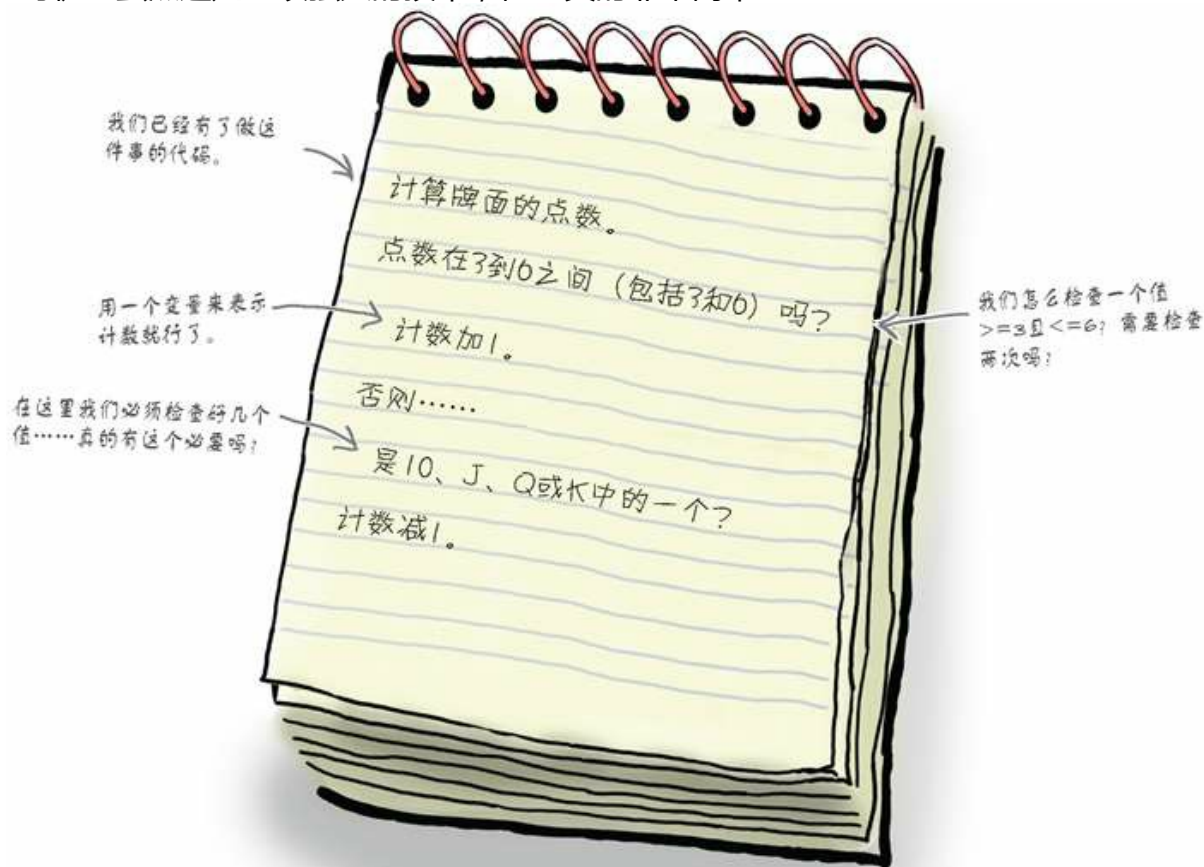 我们已经有了做这
件事的代码。
计算牌面的点数。
点数在3到6之间（包括3和6）吗？
用一个变量来表示
计数就行了。
计数加1。
我们怎么检查一个值
>=3且<=6？需要检查
两次吗？
否则……
在这里我们必须检查好几个
值……真的有这个必要吗？
是10、J、Q或K中的一个？
计数减1。